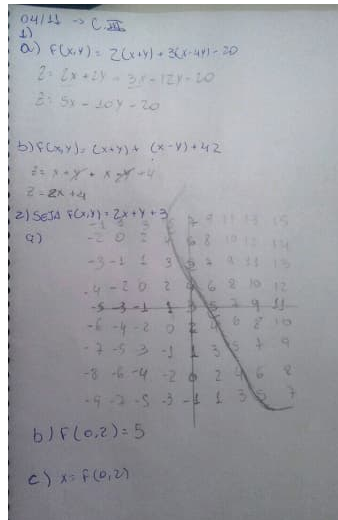 04/11 → C.III
1)
a) f(x,y) = 2(x+y) + 3(x-4y) - 20
z = 2x + 2y - 3x - 12y - 20
z = 5x - 10y - 20
b) f(x,y) = (x+y) + (x-y) + 42
z = x + y + x - y + 4
z = 2x + 4
2) SEJA f(x,y) = 2x + y + 3
a)
-2 0 2 6 8 10 12 14
-3 -1 1 3 5 7 9 11 13
-4 -2 0 2 4 6 8 10 12
-5 -3 -1 1 3 5 7 9 11
-6 -4 -2 0 2 4 6 8 10
-7 -5 3 -1 1 3 5 7 9
-8 -6 -4 -2 0 2 4 6 8
-9 -7 -5 -3 -1 1 3 5 7
b) f(0,2) = 5
c) x = f(0,2)